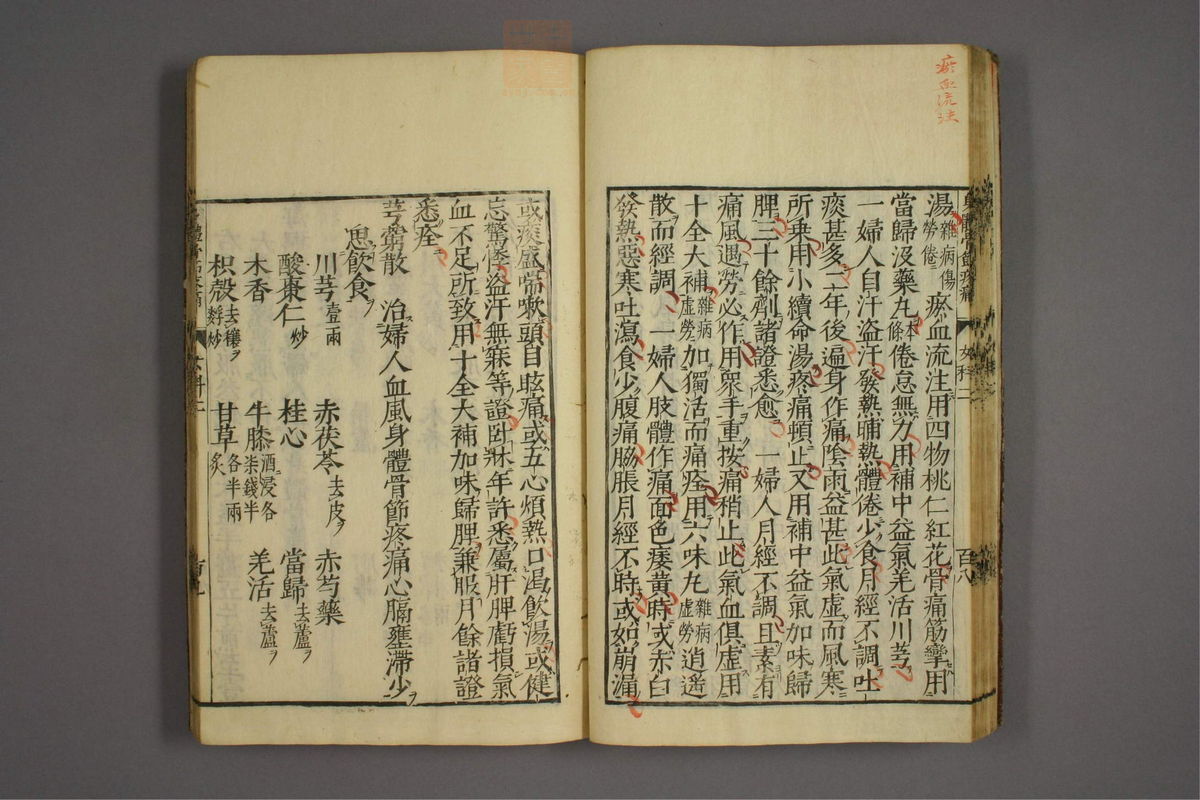 瘀血流注
湯雜病傷勞倦瘀血流注用四物桃仁紅花骨痛筋攣用
當歸沒藥丸本條倦怠無力用補中益氣羌活川芎
一婦人自汗盜汗發熱晡熱體倦少食月經不調吐
痰甚多二年後遍身作痛陰雨益甚此氣虛而風寒
所乗用小續命湯疼痛頓止又用補中益氣加味歸
脾三十餘劑諸證悉愈 一婦人月經不調且素有
痛風遇勞必作用衆手重按痛稍止此氣血俱虛用
十全大補雜病虛勞加獨活而痛痊用六味丸雜病虛勞逍遥
散而經調 一婦人肢體作痛面色痿黃時或赤白
發熱惡寒吐瀉食少腹痛脇脹月經不時或如崩漏
或痰盛喘嗽頭目眩痛或五心煩熱口渴飲湯或健
忘驚悸盜汗無寐等證臥牀年許悉屬肝脾虧損氣
血不足所致用十全大補加味歸脾兼服月餘諸證
悉痊
芎藭散 治婦人血風身體骨節疼痛心膈壅滯少
思飲食
川芎壹兩 赤茯苓去皮 赤芍藥
酸棗仁炒 桂心 當歸去蘆
木香 牛膝酒浸各柒錢半 羌活去蘆
枳殼去穰麩炒 甘草各半兩炙